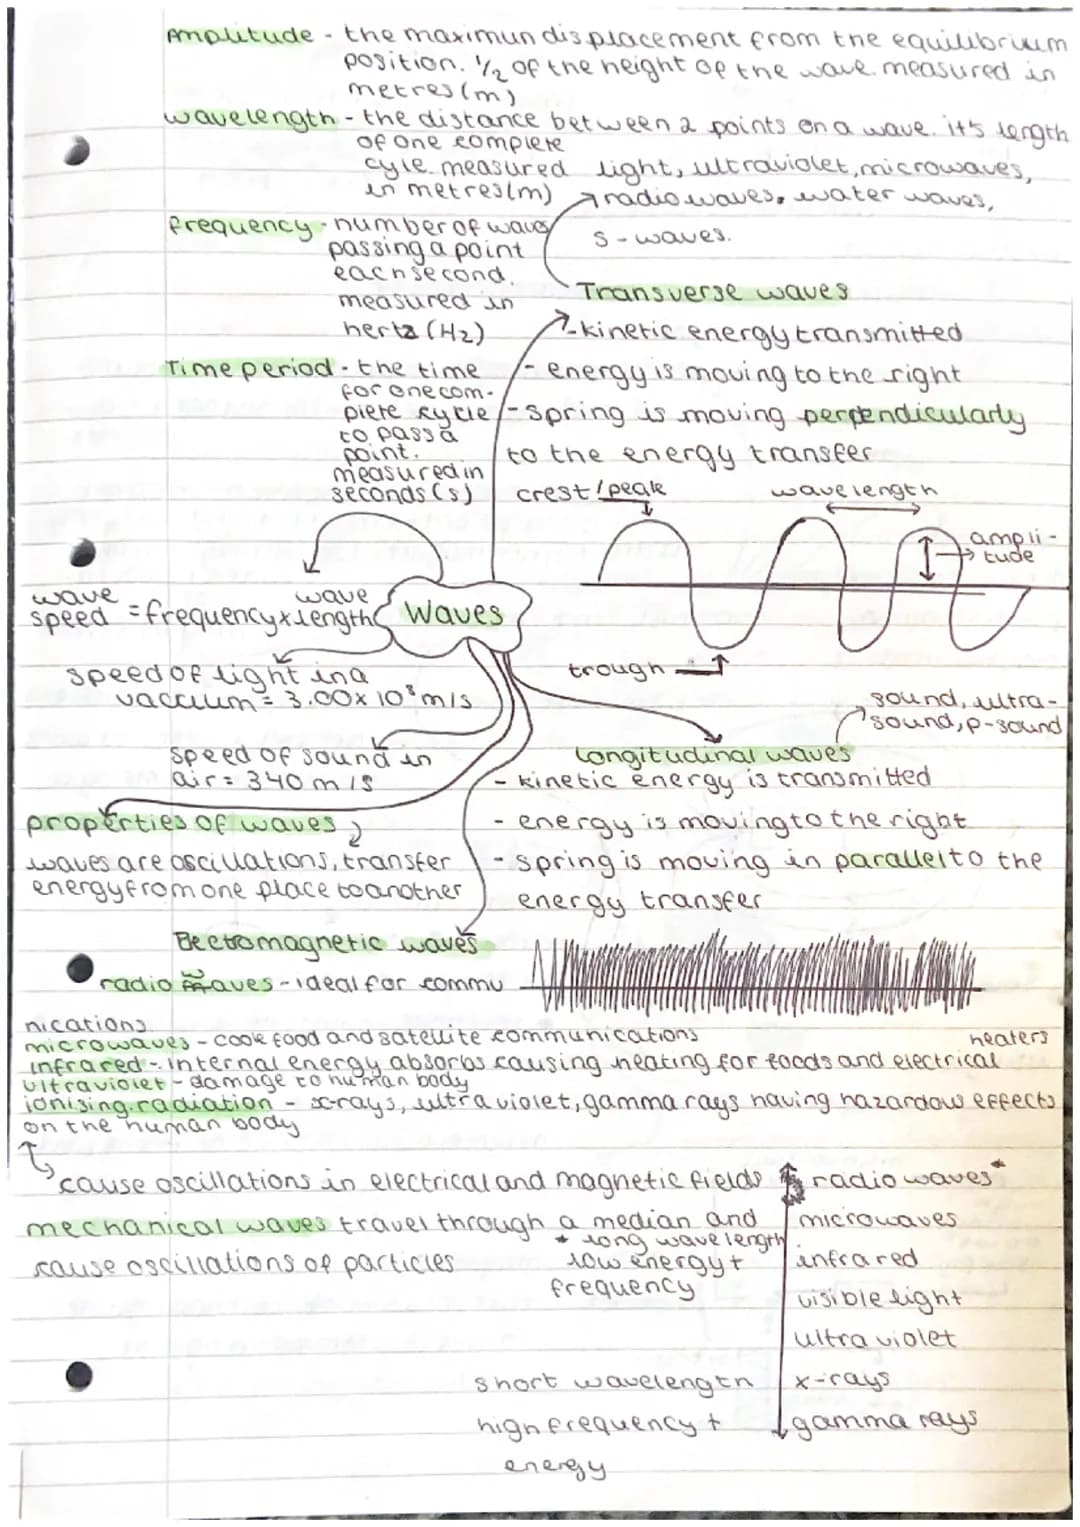 Amplitude - the maximun displacement from the equilibrium
position. 1/2 of the height of the wave. measured in
metres (m)
wavelength - the distance between 2 points on a wave. it's length
of one complete
cyle. measured
in metres (m)
light, ultraviolet, microwaves,
radio waves, water waves,
s - waves.
frequency - number of waves
passing a point
each second.
measured in
hertz (Hz)
Transverse waves
- kinetic energy transmitted
- energy is moving to the right
- spring is moving perpendicularly
to the energy transfer
Time period - the time
for one com-
plete cycle
to pass a
point.
measured in
seconds (s)
crest/peak
wavelength
ampli-
tude
trough
wave speed = frequency x wave length
Waves
speed of light in a
vaccum = 3.00 x 10⁸ m/s
speed of sound in
air = 340 m/s
sound, ultra-
sound, p-sound
longitudinal waves
- kinetic energy is transmitted
- energy is moving to the right
- spring is moving in parallel to the
energy transfer
properties of waves
waves are oscillations, transfer
energy from one place to another
Electromagnetic waves
radio waves - ideal for commu
nications
microwaves - cook food and satellite communications
heaters
infrared - internal energy absorbs causing heating for foods and electrical
ultraviolet - damage to human body
ionising radiation - x-rays, ultra violet, gamma rays having hazardow effects
on the human body
cause oscillations in electrical and magnetic fields
mechanical waves travel through a median and
cause oscillations of particles
* long wavelength
low energy +
frequency
radio waves*
microwaves
infrared
visible light
ultra violet
x-rays
gamma rays
short wavelength
high frequency +
energy